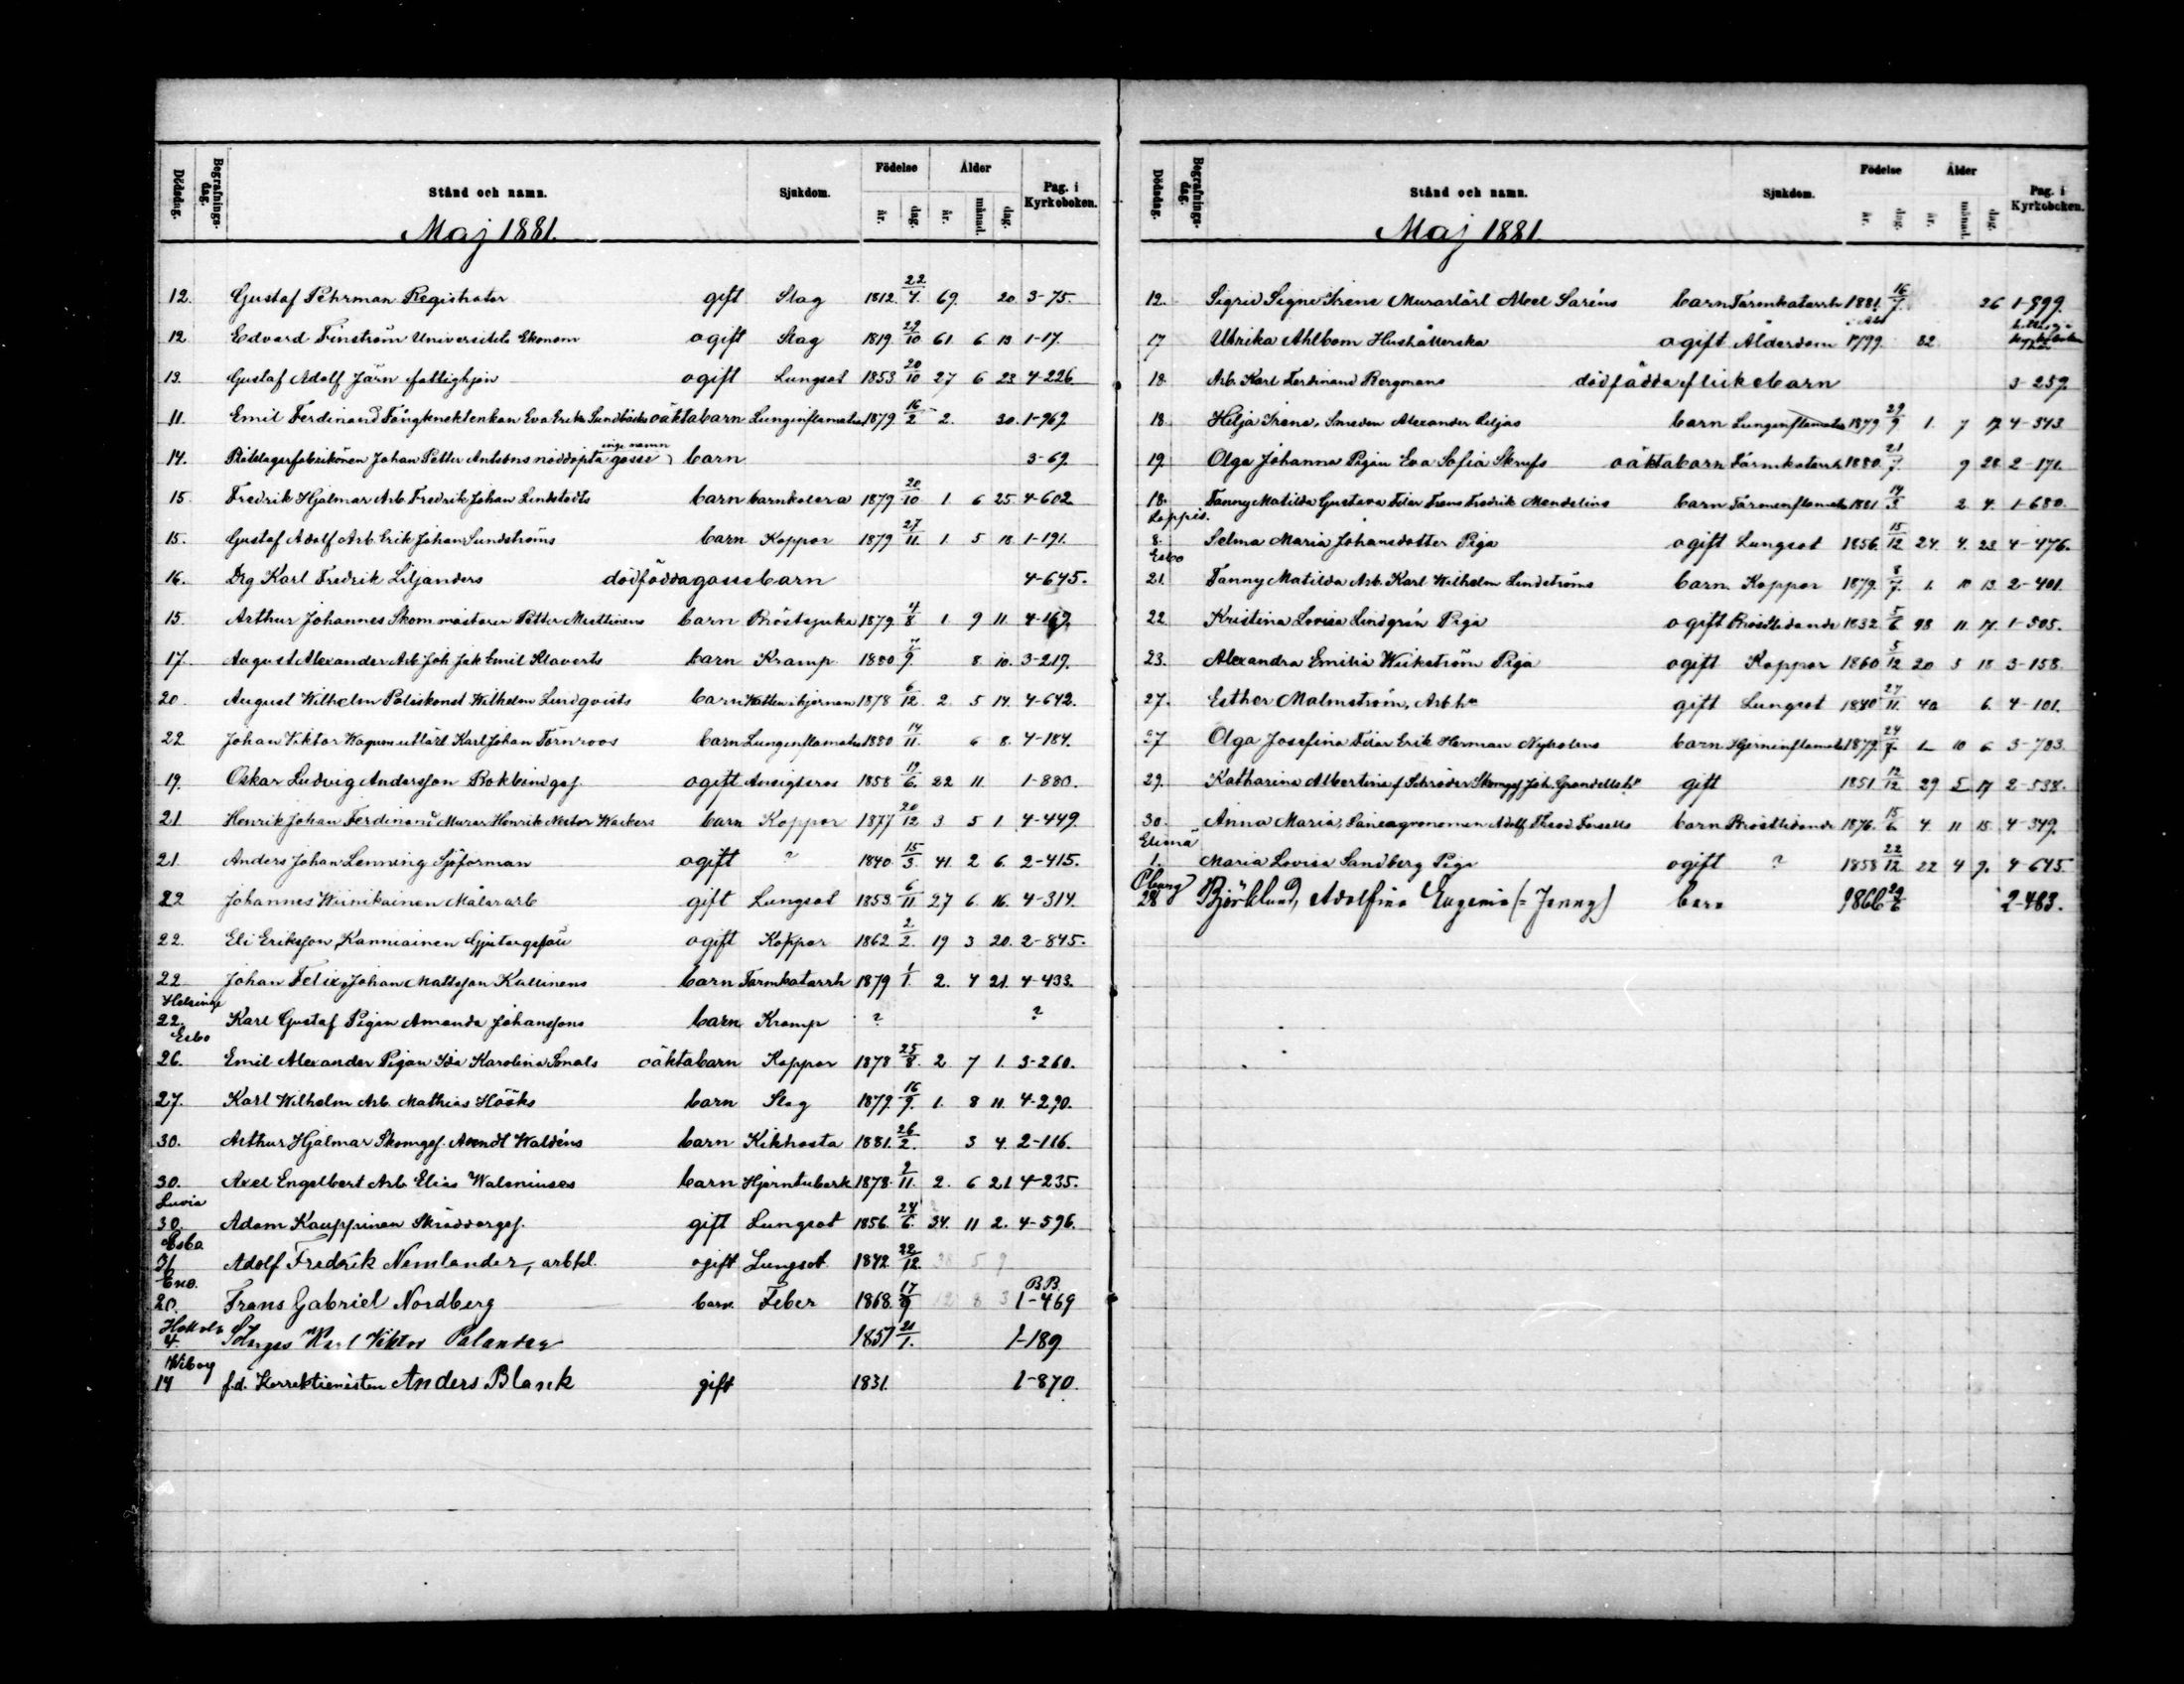 Dödsdag. Begrafnings-dag. Stånd och namn. Sjukdom. Födelse år. dag. Ålder år. månad. dag. Pag. i Kyrkoboken.
Maj 1881.
12. Gustaf Pehrman Registrator gift Slag 1812. 22/4. 69. 20 3-75.
12 Edvard Finström Universitets Ekonom ogift Slag 1819 29/10 61. 6 13 1-17.
13. Gustaf Adolf Järn fattighjon ogift Lungsot 1853. 20/10 27 6 23 4-226
11. Emil Ferdinand Fångknektenkan Eva Erika Sundbäcks oäkta barn Lunginflamation 1879. 16/2 2. 30. 1-969.
14. Johan Petter Antsons nöddöpta gosse inge namn barn 3-69.
15. Fredrik Hjalmar Arb. Fredrik Johan Lindstedts barn barnkolera 1879 20/10 1. 6 25 4-602
15. Gustaf Adolf Arb. Erik Johan Sundströms barn Koppor 1879 27/11. 1. 5 18 1-191.
16. Drg Karl Fredrik Liljanders dödfödda gossebarn 4-645.
15. Arthur Johannes Skom mästaren Petter Miettinens barn Bröstsjuka 1879. 4/8 1. 9 11 4-169.
17. August Alexander Arb. Joh. Jak Emil Klaverts barn Kramp 1880 /9. 8. 10. 3-219.
20. August Wilhelm Poliskonst Wilhelm Lindqvists barn Watten i hjernan 1878 6/12. 2. 5 14. 4-642.
22 Johan Viktor Karl Johan Törnroos barn Lunginflamation 1880 14/11. 6 8. 4-184.
19. Oskar Ludvig Andersson Bokbindgs. ogift Ansigtsros 1858 19/6. 22 11. 1-880.
21 Henrik Johan Ferdinand Murar Henrik Nestor Wackers barn Koppor 1877 20/12 3 5 1. 4-449.
21. Anders Johan Lenning Sjöforman ogift ? 1840. 15/3. 41. 2 6. 2-415.
22 Johannes Wiinikainen Målararb gift Lungsot 1853. 6/11 27 6. 16. 4-314.
22. Eli Eriksson Kanniainen ogift Koppor 1862 2/2. 19 3 20. 2-845.
22 Johan Felix, Johan Mattsson Kallinens barn Tarmkatarrh 1879 1/1. 2. 4 21. 4-433.
Helsinge
22. Karl Gustaf Pigan Amanda Johanssons barn Kramp ? ?
Esbo
26. Emil Alexander Pigan Ida Karolina Smals oäkta barn Koppor 1878 25/8. 2. 7 1. 3-260.
27. Karl Wilhelm Arb. Mathias Hööks barn Slag 1879. 16/9. 1. 8 11. 4-290.
30. Arthur Hjalmar Skomgs. Arendt Waldéns barn Kikhosta 1881. 26/2. 3 4. 2-116.
30. Axel Engelbert Arb. Elias Waleniuses barn Hjerntuberk 1878. 9/11. 2. 6 21 4-235.
Luvia
30. Adam Kauppinen Skräddargs. gift Lungsot 1856. 24/6. 34. 11 2. 4-596.
Esbo
31 Adolf Fredrik Nemlander, arbkl. ogift Lungsot 1842 22/12. 38 5 9
Eno.
20. Frans Gabriel Nordberg barn Feber 1868. 17/9 12 8 3 B.B. 1-469
Hollola
4. Karl Viktor Palander 1857 21/1. 1-189
Wiborg
14 f.d. Korrektionisten Anders Blank gift 1831. 1-870.
Dödsdag. Begrafnings-dag. Stånd och namn. Sjukdom. Födelse år. dag. Ålder år. månad. dag. Pag. i Kyrkoboken.
Maj 1881.
12. Sigrid Signe Irene Murarlärl Abel Saréns barn Tarmkatarrh 1881. 16/7. 26 1-999.
17 Ulrika Ahlbom Hushållerska ogift Ålderdom 1799. 82
18. Arb. Karl Ferdinand Bergmans dödfödda flickebarn 3-259.
18. Hilja Irene, Smeden Alexander Ciljas barn Lunginflamation 1879 29/9 1. 7 17 4-343
19. Olga Johanna Pigan Eva Sofia Skrufs oäkta barn Tarmkatarrh 1880. 21/7. 9 28 2-171.
18. Fanny Matilda Gustava Filar Frans Fredrik Mandelins barn Tarmenflamation 1881 14/3. 2 4. 1-680.
Loppis.
8. Selma Maria Johansdotter Piga ogift Lungsot 1856. 15/12 24. 4. 23 4-476.
Esbo
21. Fanny Matilda Arb. Karl Wilhelm Lindströms barn Koppor 1879. 8/7. 1. 10 13. 2-401.
22 Kristina Lovisa Lindgrén Piga ogift Bröstlidande 1832. 5/6 98 11 17. 1-505.
23. Alexandra Emilia Wiikström Piga ogift Koppor 1860 5/12 20 5 18 3-158
27. Esther Malmström, Arb.hu gift Lungsot 1840 27/11. 40 6. 4-101.
27 Olga Josefina Filar Erik Herman Nyholms barn Hjerninflamation 1879. 24/7. 1. 10 6 3-783.
29. Katharina Albertina f Schröder Skomgs Joh. Grandells hu gift 1851. 12/12 29 5 17 2-538.
30. Anna Maria, Adolf Theod. Forsells barn Bröstlidande 1876. 15/6. 4. 11 15 4-349.
Elimä
1. Maria Lovisa Sandberg Piga ogift ? 1858 22/12 22 4 9. 4-645
28 Björklund, Adolfina Eugenia (= Jenny) barn 1866 29/6 2-483.